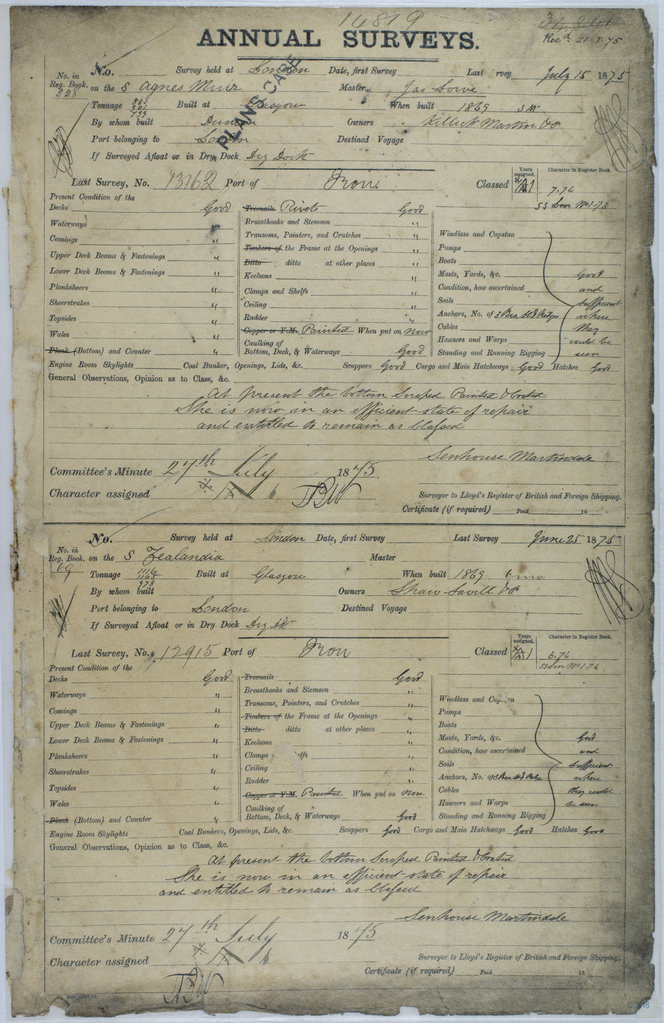 14819
Rec'd 21.7.75
ANNUAL SURVEYS.
PLANS CASE
No. in Reg. Book.
228
No. Survey held at London Date, first Survey Last Survey July 15 1875
on the S Agnes Muir Master Jas Lowe
Tonnage Built at Glasgow When built 1869
By whom built Owners Killick Martin & Co
Port belonging to London Destined Voyage
If Surveyed Afloat or in Dry Dock Dry Dock
Last Survey, No. 13162 Port of Iron Classed Years assigned. A1 Character in Register Book
7.74
SS Lon No1-73
Present Condition of the
Decks Good
Waterways "
Comings "
Upper Deck Beams & Fastenings "
Lower Deck Beams & Fastenings "
Planksheers "
Sheerstrakes "
Topsides "
Wales "
Plank (Bottom) and Counter "
Treenails Rivets Good
Breasthooks and Stemson "
Transoms, Pointers, and Crutches "
Timbers of the Frame at the Openings "
Ditto ditto at other places "
Keelsons "
Clamps and Shelfs "
Ceiling "
Rudder "
Copper or Y.M. Painted When put on Now
Caulking of
Bottom, Deck, & Waterways Good
Windlass and Capstan
Pumps
Boats
Masts, Yards, &c. Good
Condition, how ascertained and
Sails Sufficient
Anchors, No. of 3 where
Cables they
Hawsers and Warps could be
Standing and Running Rigging seen
Engine Room Skylights Coal Bunker, Openings, Lids, &c. Scuppers Good Cargo and Main Hatchways Good Hatches Good
General Observations, Opinion as to Class, &c.
At present the bottom Scraped Painted & Coated
She is now in an efficient state of repair
and entitled to remain as Classed
Senhouse Martindale
Committee's Minute 27th July 1875.
Character assigned A 1
Surveyor to Lloyd's Register of British and Foreign Shipping.
Certificate (if required) Paid 18
No. in Reg. Book.
69
No. Survey held at London Date, first Survey Last Survey June 25 1875
on the S Zealandia Master
Tonnage 1116 1165 978 Built at Glasgow When built 1869 6 mo
By whom built Owners Shaw Savill & Co
Port belonging to London Destined Voyage
If Surveyed Afloat or in Dry Dock Dry Dk
Last Survey, No. 12915 Port of Iron Classed Years assigned. A1 Character in Register Book
6.74
SS Lon No1-74
Present Condition of the
Decks Good
Waterways "
Comings "
Upper Deck Beams & Fastenings "
Lower Deck Beams & Fastenings "
Planksheers "
Sheerstrakes "
Topsides "
Wales "
Plank (Bottom) and Counter "
Treenails Good
Breasthooks and Stemson "
Transoms, Pointers, and Crutches "
Timbers of the Frame at the Openings "
Ditto ditto at other places "
Keelsons "
Clamps and Shelfs "
Ceiling "
Rudder "
Copper or Y.M. Painted When put on Now
Caulking of
Bottom, Deck, & Waterways Good
Windlass and Capstan
Pumps
Boats
Masts, Yards, &c. Good
Condition, how ascertained and
Sails Sufficient
Anchors, No. of 3 where
Cables they could
Hawsers and Warps be seen
Standing and Running Rigging
Engine Room Skylights Coal Bunkers, Openings, Lids, &c. Scuppers Good Cargo and Main Hatchways Good Hatches Good
General Observations, Opinion as to Class, &c.
At present the bottom Scraped Painted & Coated
She is now in an efficient state of repair
and entitled to remain as Classed
Senhouse Martindale
Committee's Minute 27th July 1875
Character assigned A 1
Surveyor to Lloyd's Register of British and Foreign Shipping.
Certificate (if required) Paid 18